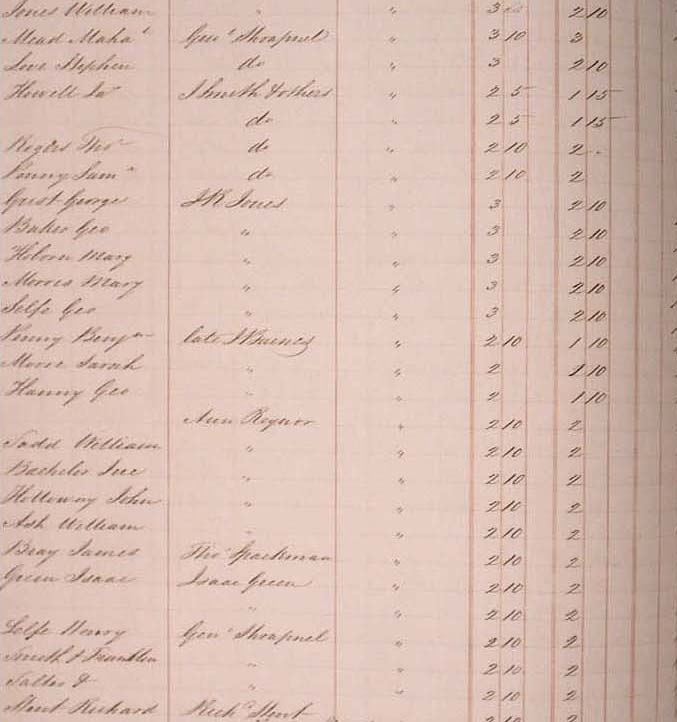 Jones William " " 3 2 10
Mead Maha Genl Shrapnel " 3 10 3
Love Stephen do " 3 2 10
Howell Jas J Smith & others " 2 5 1 15
do " 2 5 1 15
Rogers Thos do " 2 10 2 "
Penny Saml do " 2 10 2
Gust George J R Jones " 3 2 10
Baker Geo " " 3 2 10
Mary " " 3 2 10
Morris Mary " " 3 2 10
Selfe Geo " 3 2 10
Penny Benjn late J Barnes " 2 10 1 10
Moore Sarah " " 2 1 10
Hanny Geo " " 2 1 10
Ann Reynor " 2 10 2
Todd William " " 2 10 2
Bachelor " " 2 10 2
Holloway John " " 2 10 2
Ash William " " 2 10 2
Bray James Thos Spackman " 2 10 2
Green Isaac Isaac Green " 2 10 2
" " 2 10 2
Selfe Henry Genl Shrapnel " 2 10 2
Smith & Franklin " " 2 10 2
Salter & " " 2 10 2
Richard Richd 2 10 2